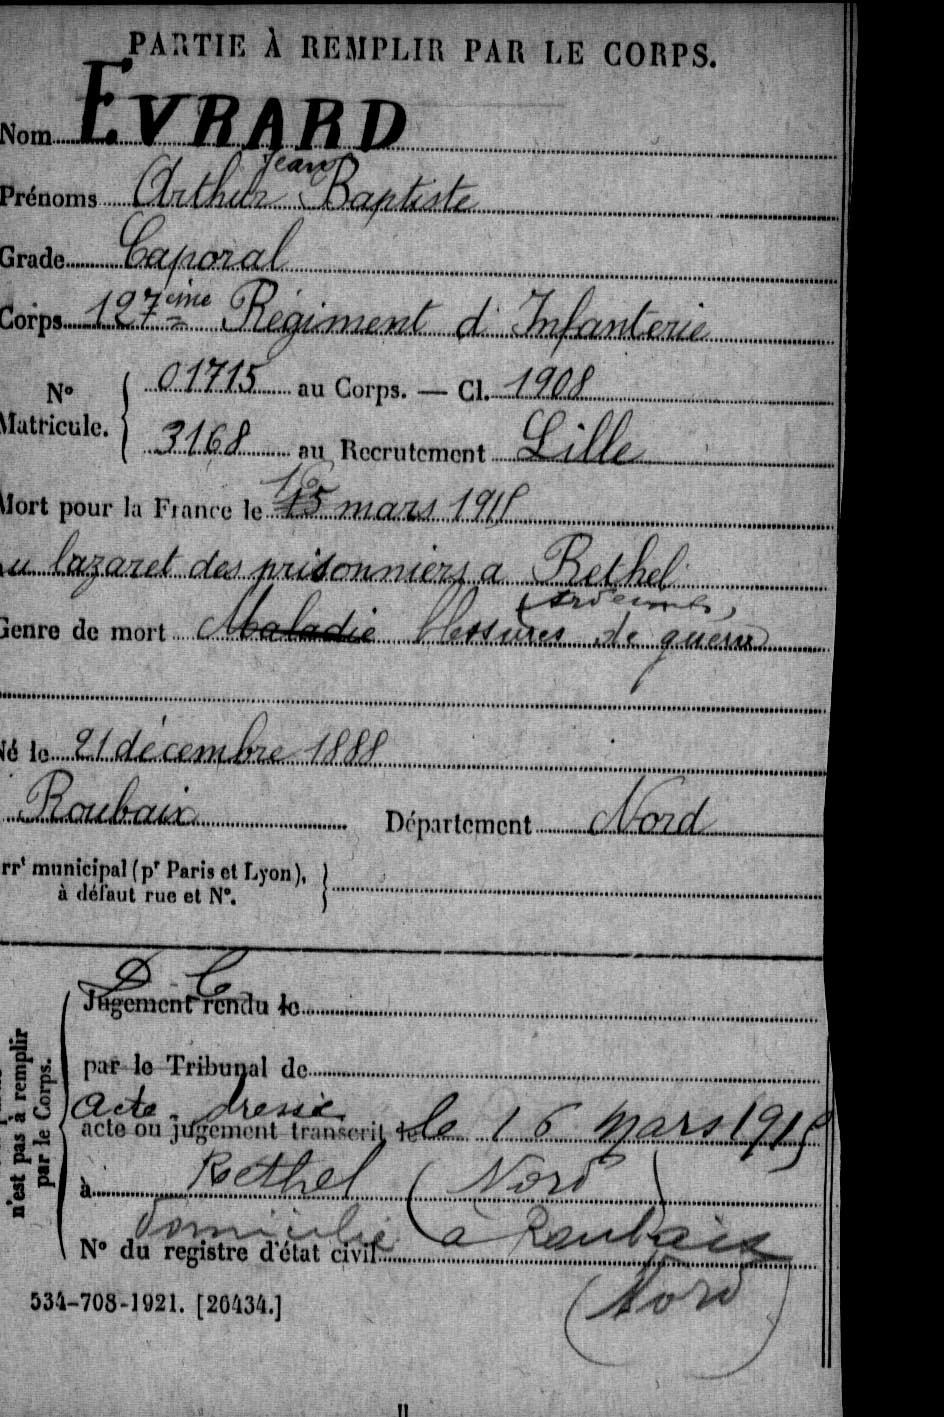 PARTIE À REMPLIR PAR LE CORPS.
Nom EVRARD
Jean
Prénoms Arthur Baptiste
Grade Caporal
Corps 127ème Régiment d'Infanterie
N° Matricule. 01715 au Corps. — Cl. 1908
3168 au Recrutement Lille
16
Mort pour la France le 15 mars 1915
Au lazaret des prisonniers a Rethel
(Ardennes)
Genre de mort Maladie blessures de guerre
Né le 21 décembre 1888
Roubaix Département Nord
arrt municipal (pr Paris et Lyon),
à défaut rue et N°.
D C
Jugement rendu le
par le Tribunal de
acte dressé
acte ou jugement transcrit le le 16 mars 1915
à Rethel (Nord)
domicilié à Roubaix
N° du registre d'état civil
(Nord)
534-708-1921. [26434.]
n'est pas à remplir
par le Corps.